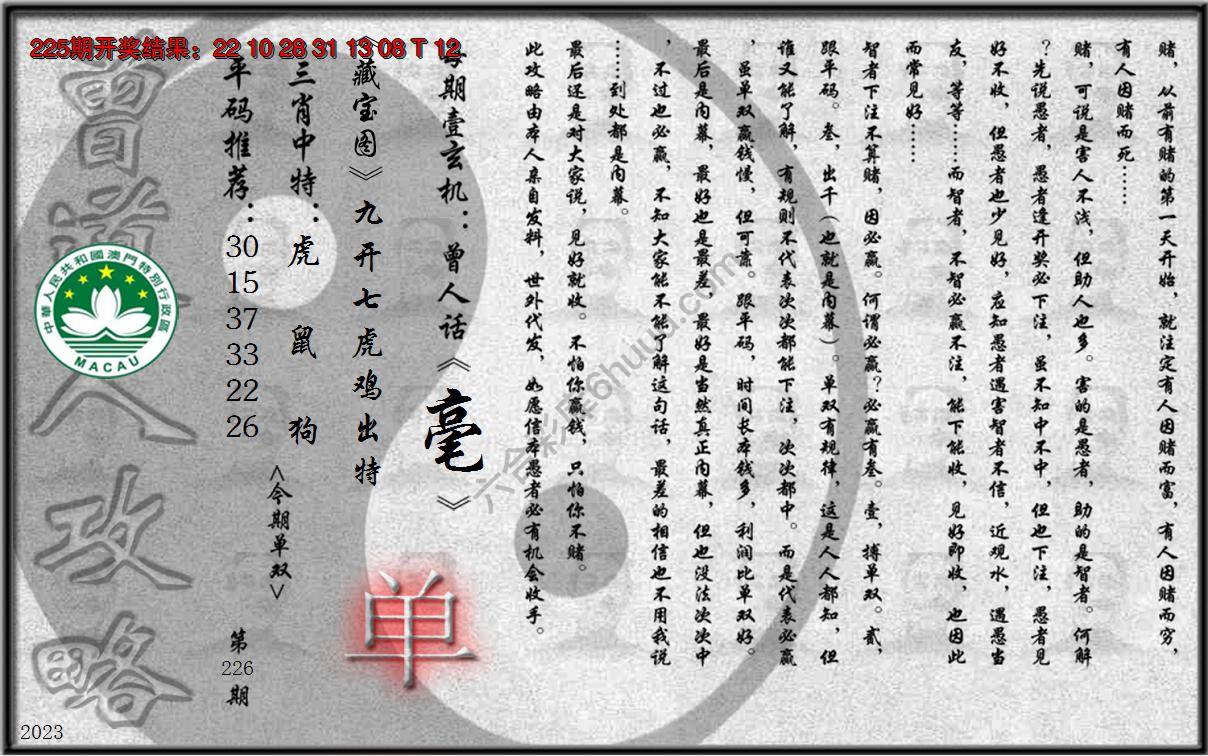 225期开奖结果：22 10 28 31 13 08 T 12
赌，从前有赌的第一天开始，就注定有人因赌而富，有人因赌而穷，
有人因赌而死……
赌，可说是害人不浅，但助人也多。害的是愚者，助的是智者。何解
？先说愚者，愚者逢开奖必下注，虽不知中不中，但也下注，愚者见
好不收，但愚者也少见好，应知愚者遇害智者不信，近观水，遇愚当
友，等等……而智者，不智必赢不注，能下能收，见好即收，也因此
而常见好……
智者下注不算赌，因必赢。何谓必赢？必赢有叁。壹，搏单双。贰，
跟平码。叁，出千（也就是内幕）。单双有规律，这是人人都知，但
谁又能了解，有规则不代表次次都能下注，次次都中。而是代表必赢
，虽单双赢钱慢，但可靠。跟平码，时间长本钱多，利润比单双好。
最后是内幕，最好也是最差，最好是当然真正内幕，但也没法次次中
，不过也必赢，不知大家能不能了解这句话，最差的相信也不用我说
……到处都是内幕。
最后还是对大家说，见好就收。不怕你赢钱，只怕你不赌。
此攻略由本人亲自发料，世外代发，如愿信本愚者必有机会收手。
每期壹玄机：曾人话《毫》
《藏宝图》九开七虎鸡出特
三肖中特：虎 鼠 狗
<今期单双>
单
平码推荐：30 15 37 33 22 26
第226期
曾道人攻略
中華人民共和國澳門特別行政區
MACAU
六合彩库6huuu.com
2023